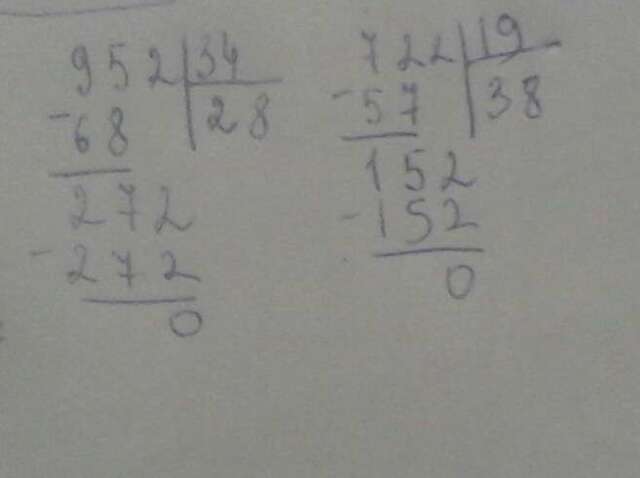 952 34
-68 28
272
-272
0
722 19
-57 38
152
-152
0